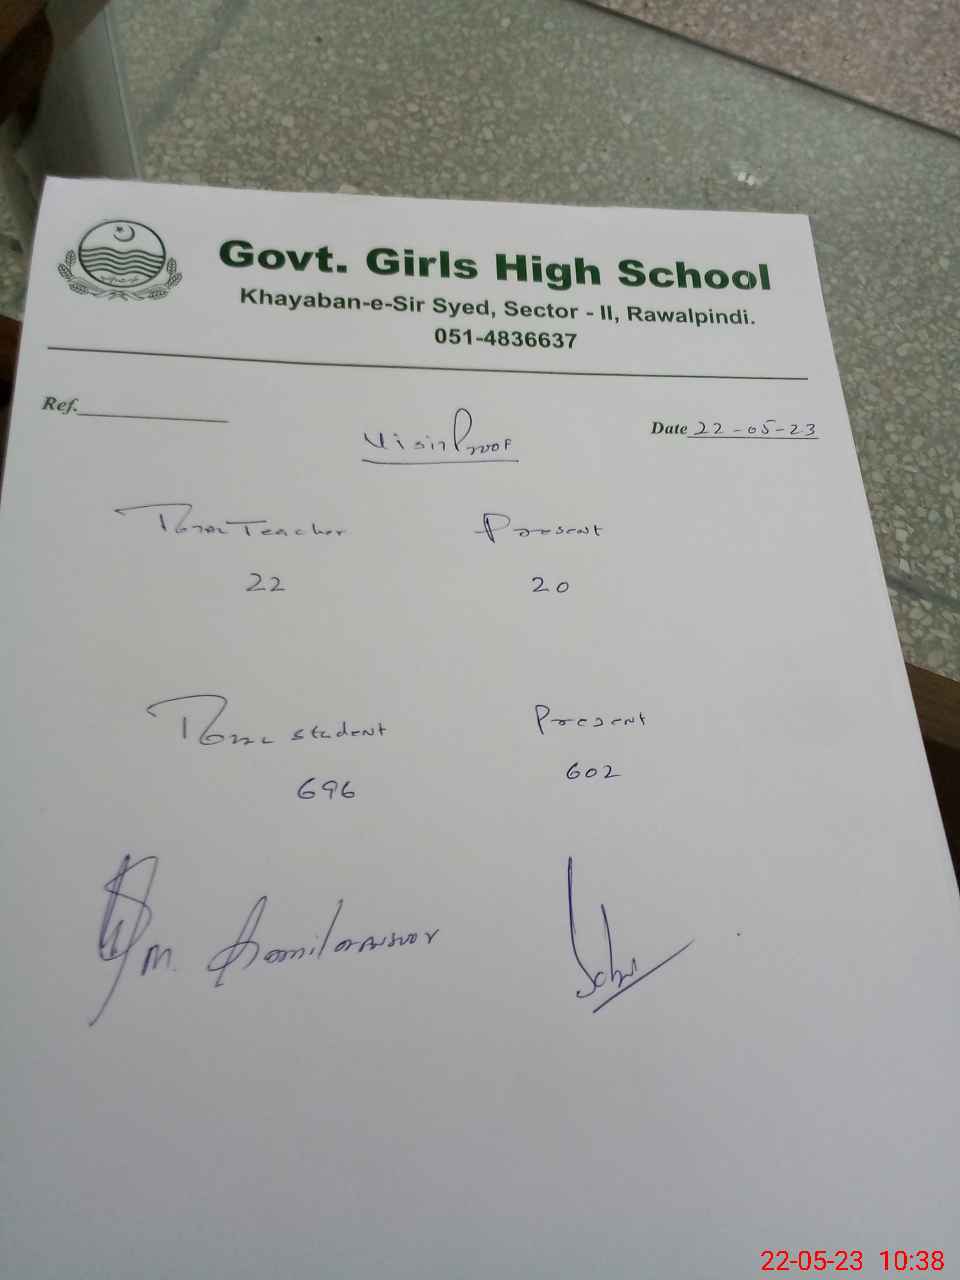 Govt. Girls High School
Khayaban-e-Sir Syed, Sector - II, Rawalpindi.
051-4836637
Ref.
Date 22-05-23
Visit Proof
Total Teacher Present
22 20
Total student Present
696 602
M.
22-05-23 10:38